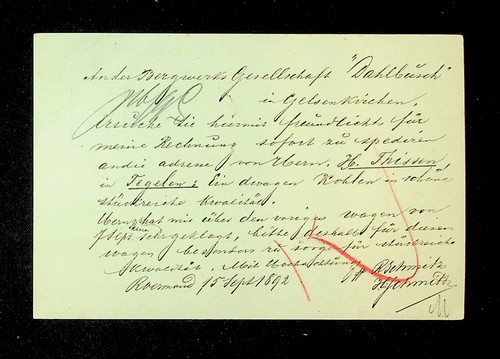 An der Bergwerks Gesellschaft "Dahlbusch"
in Gelsenkirchen.
Ersuche Sie hiermit freundlichts für
meine Rechnung sofort zu spediren
an die adresse von Herrn. H. Thissen
in Tegelen: Ein dwagen Kohlen in schöne
stückreiche kwalität.
hat mir über den vorigen wagen von
Sept. sehr geklagt, bitte deshalb für diesen
wagen besonders zu sorge für stückreiche
kwalität. Mit Hochachtung
Roermond 15 Sept 1892
Schmitz